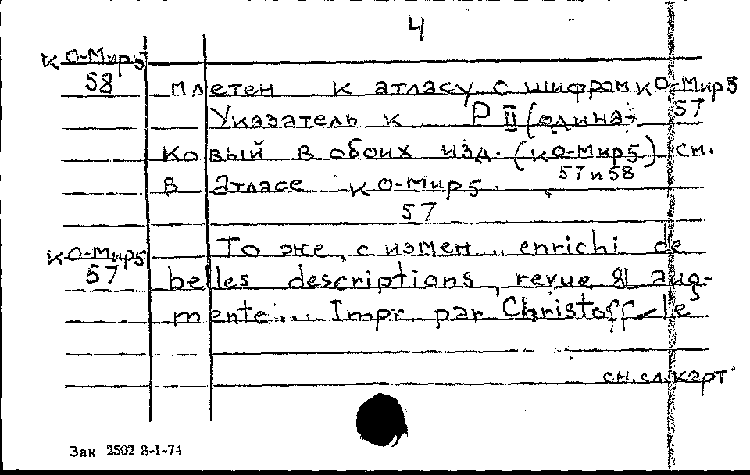 4
КО-Мир5
58
плетен к атласу с шифром КО-Мир5
57
Указатель к Р II (одина-
ковый в обоих изд. (КО-Мир5) см.
57 и 58
в атласе КО-Мир5.
57
КО-Мир5
57
То же, с измен... enrichi de
belles descriptions, revue & aug-
menté... Impr. par Christoff. le
см. сл. карт.
Зак 2502 2-I-74